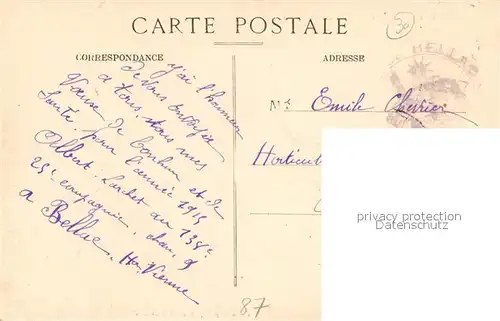 30
CARTE POSTALE
CORRESPONDANCE
ADRESSE
BELLAC
j'ai l'honneur
de vous envoyer
a tous, tous mes
vœux de bonheur et de
Santé, pour l'année 1915
Albert Lachet au 138e
25e compagnie, cham. 9
a Bellac. Hte Vienne
Mr Emile Chérier
Horticul
privacy protection
87